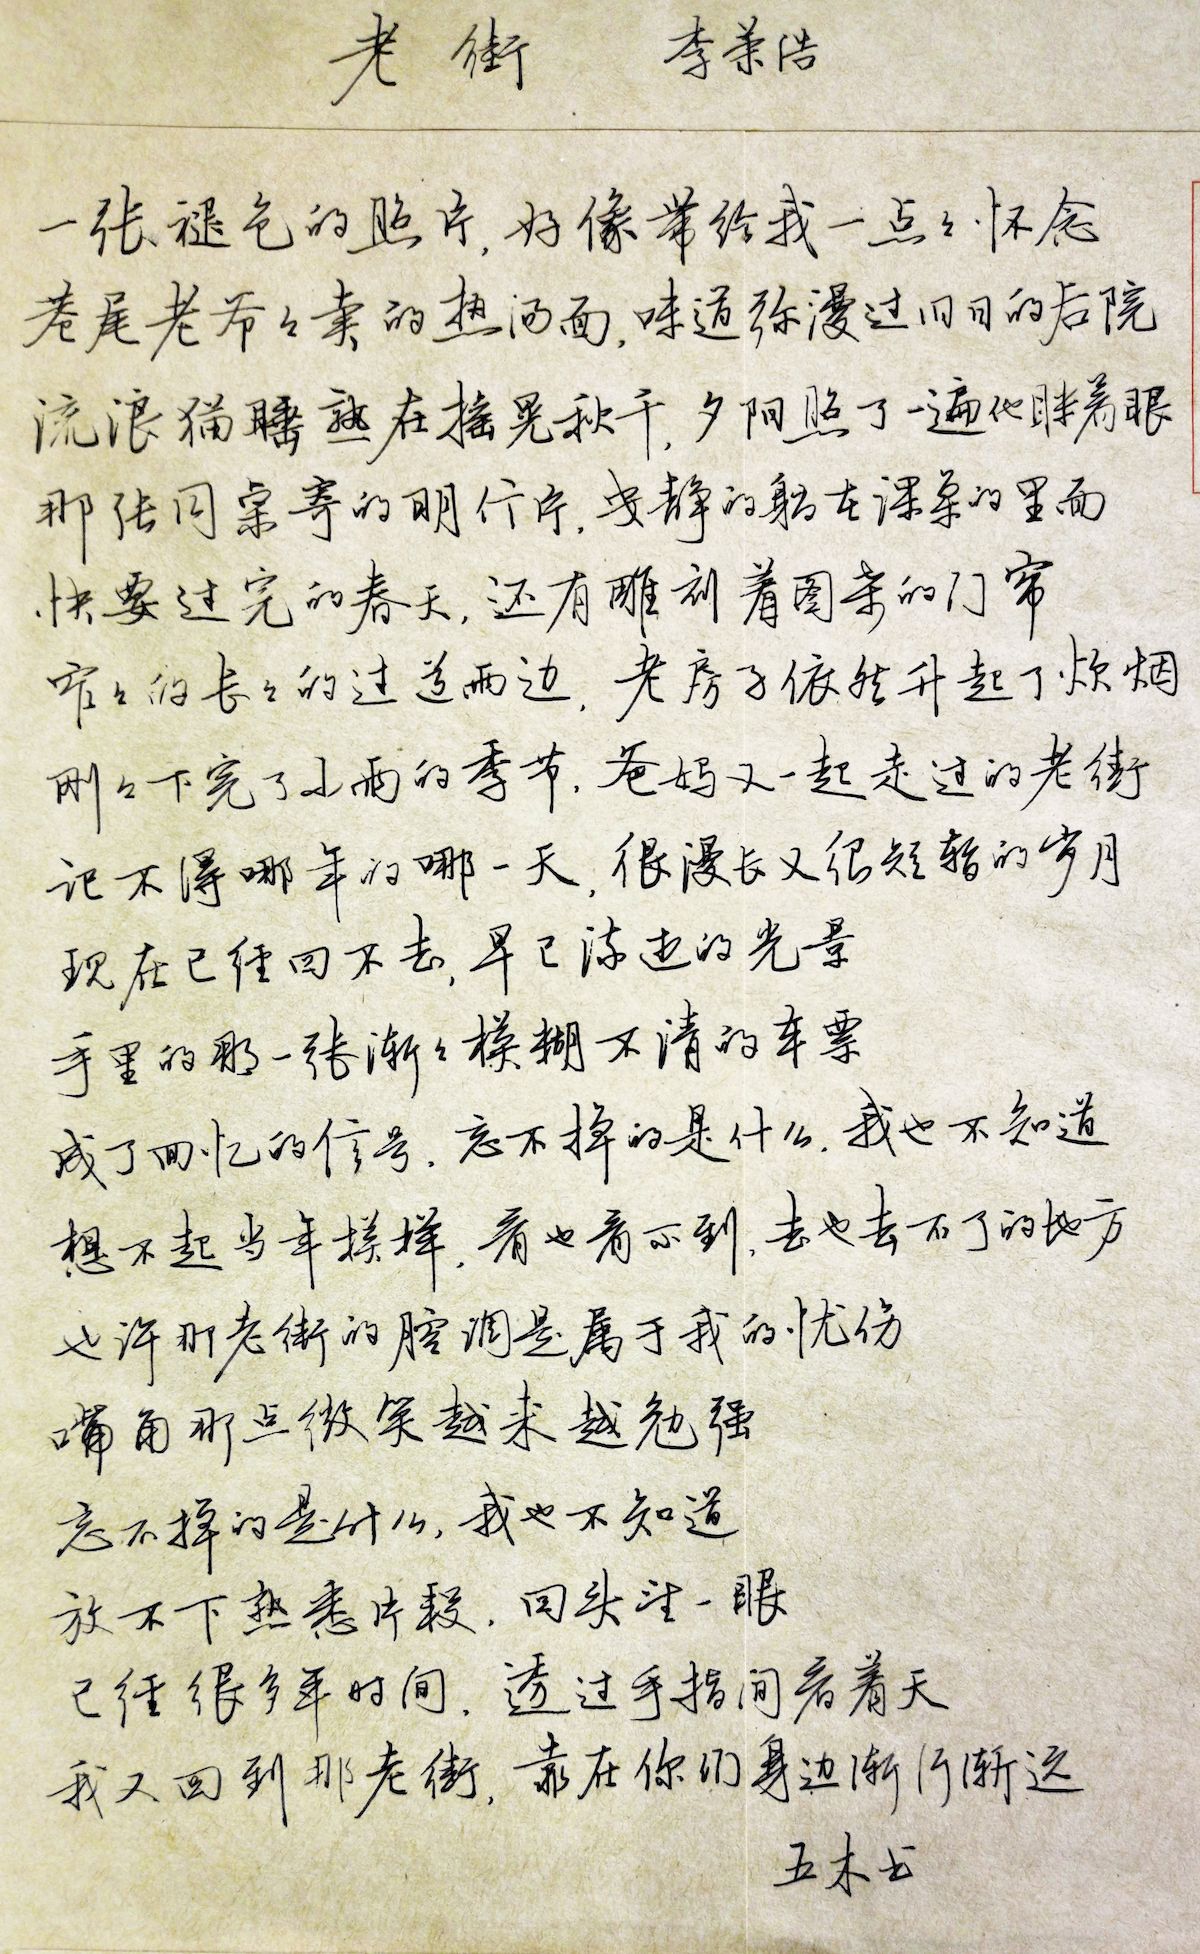 老街 李荣浩
一张褪色的照片,好像带给我一点々怀念
巷尾老爷々卖的热汤面,味道弥漫过旧日的后院
流浪猫睡熟在摇晃秋千,夕阳照了一遍他眯着眼
那张同桌寄的明信片,安静的躺在课桌的里面
快要过完的春天,还有雕刻着图案的门帘
窄々的长々的过道两边,老房子依然升起了炊烟
刚々下完了小雨的季节,爸妈又一起走过的老街
记不得哪年的哪一天,很漫长又很短暂的岁月
现在已经回不去,早已流逝的光景
手里的那一张渐々模糊不清的车票
成了回忆的信号,忘不掉的是什么,我也不知道
想不起当年模样,看也看不到,去也去不了的地方
也许那老街的腔调是属于我的忧伤
嘴角那点微笑越来越勉强
忘不掉的是什么,我也不知道
放不下熟悉片段,回头望一眼
已经很多年时间,透过手指间看着天
我又回到那老街,靠在你们身边渐行渐远
五木书